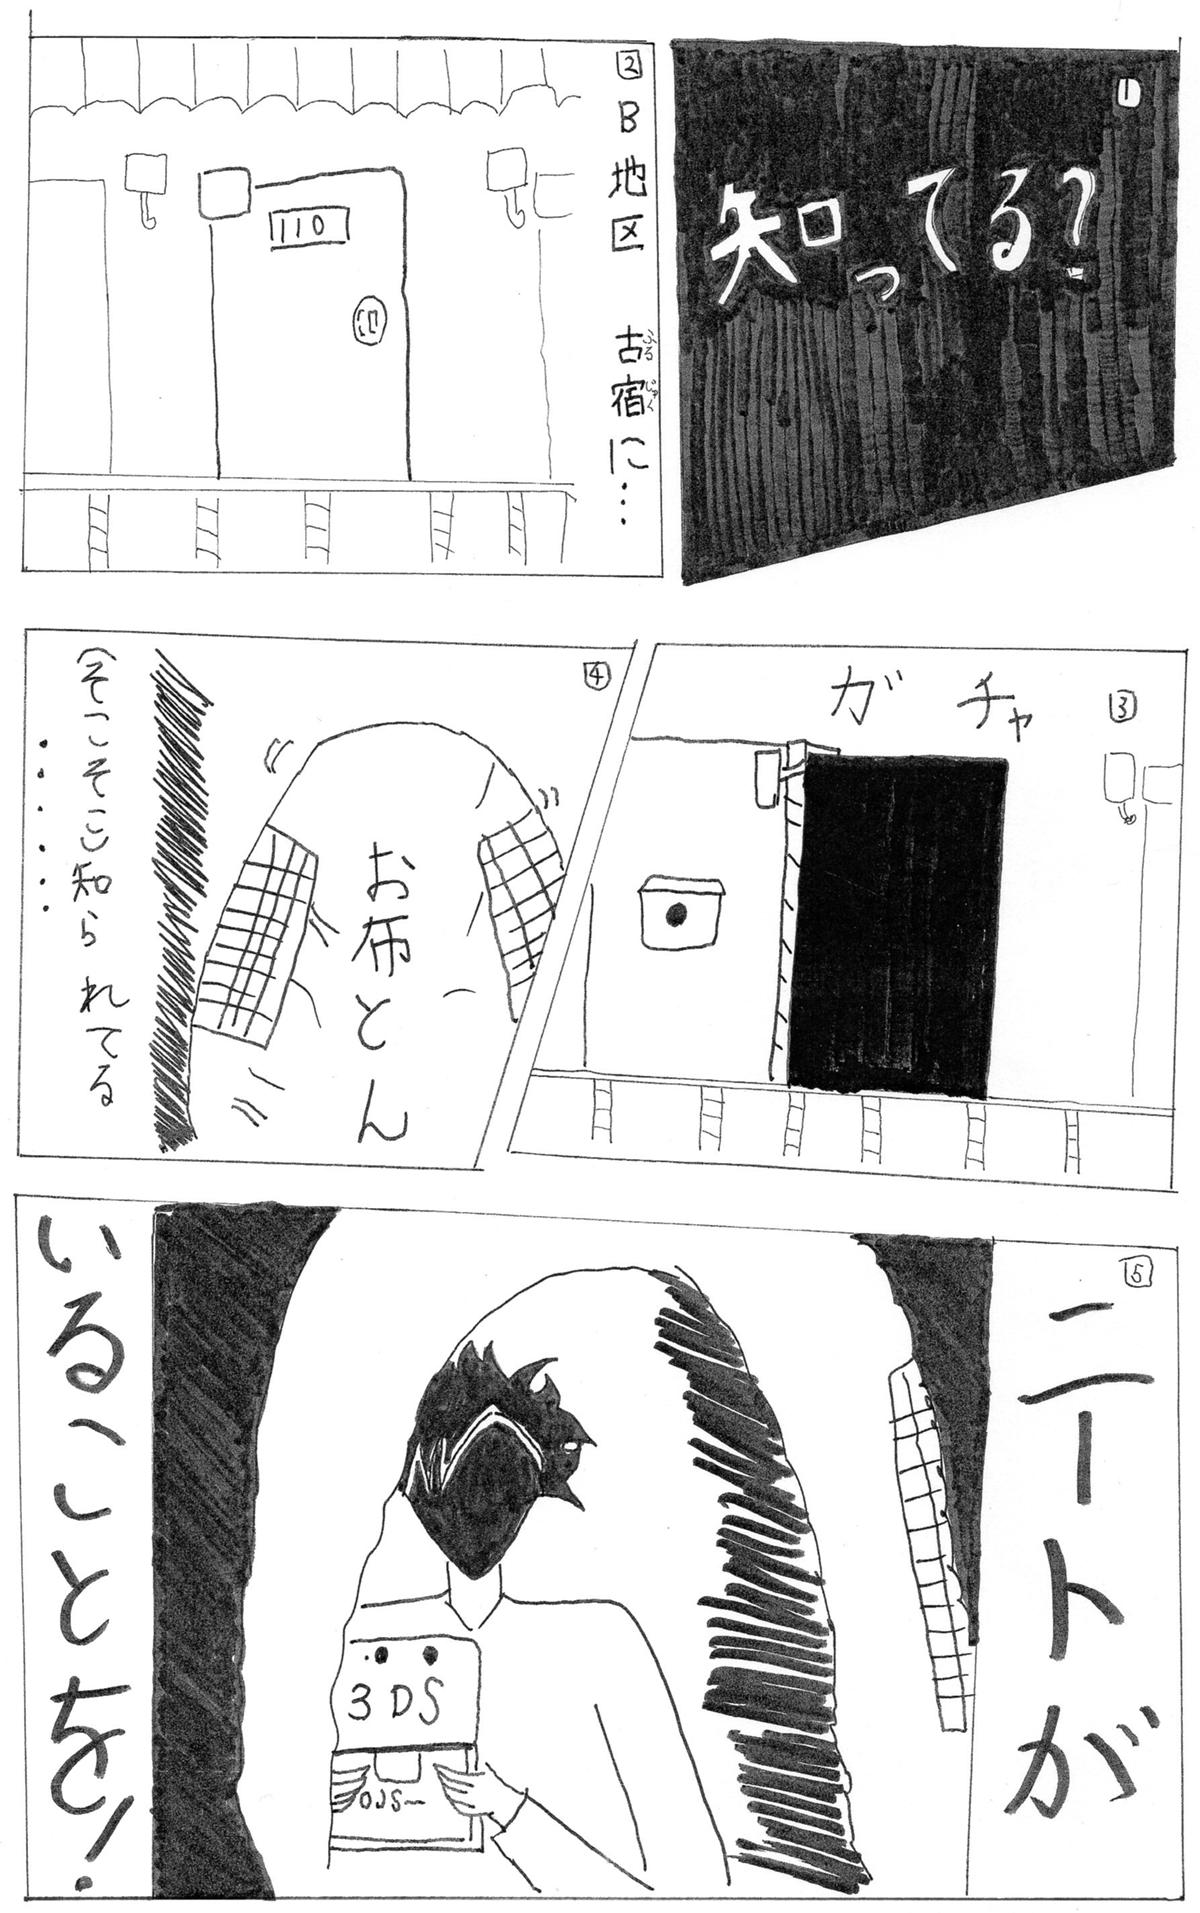 1
知ってる?
2
B地区 古宿に…
ふるじゅく
110
3
ガチャ
4
お布とん
(そこそこ)知られてる
5
ニートが
3DS
いることを!